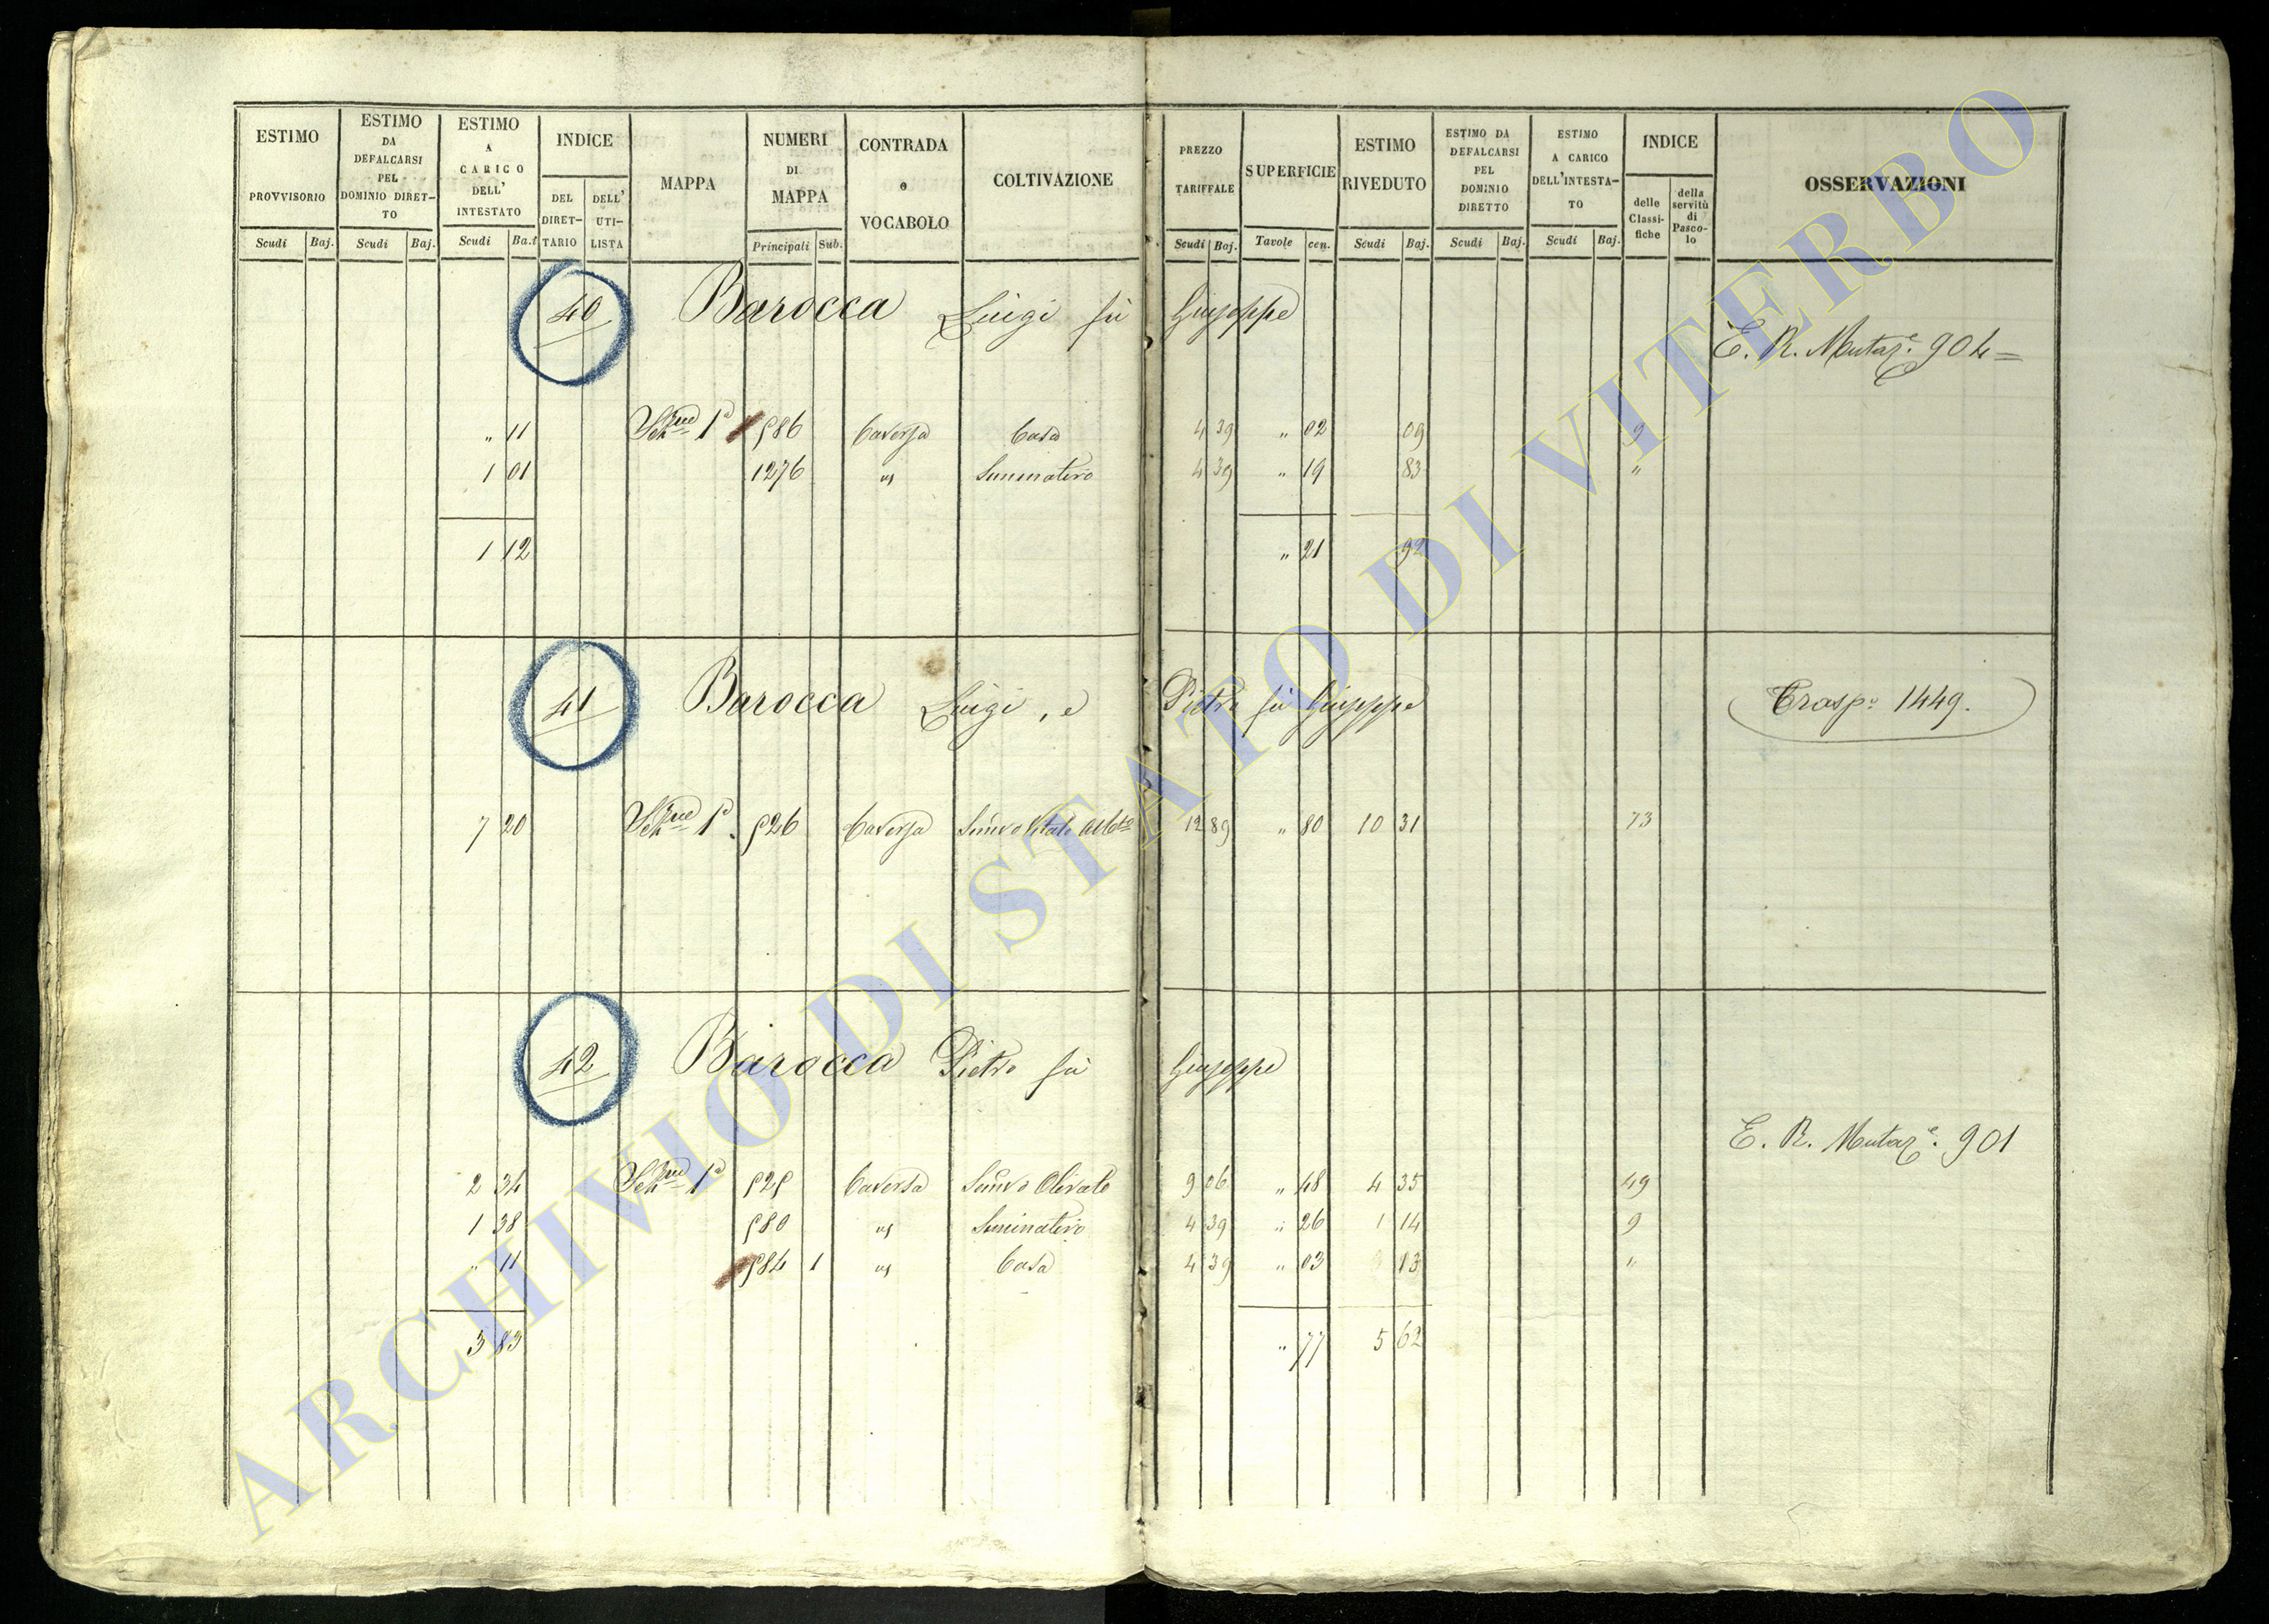 ESTIMO PROVVISORIO
Scudi Baj.
ESTIMO DA DEFALCARSI PEL DOMINIO DIRETTO
Scudi Baj.
ESTIMO A CARICO DELL' INTESTATO
Scudi Ba.
INDICE
DEL DIRETTARIO
DELL' UTILISTA
MAPPA
NUMERI DI MAPPA
Principali Sub.
CONTRADA o VOCABOLO
COLTIVAZIONE
PREZZO TARIFFALE
Scudi Baj.
SUPERFICIE
Tavole cen.
ESTIMO RIVEDUTO
Scudi Baj.
ESTIMO DA DEFALCARSI PEL DOMINIO DIRETTO
Scudi Baj.
ESTIMO A CARICO DELL'INTESTATO
Scudi Baj.
INDICE
delle Classifiche
della servitù di Pascolo
OSSERVAZIONI
40 Barocca Luigi fù Giuseppe
E. R. Mutaz.e 904=
" 11 1a 586 Caversa Casa 4 39 " 02 09 9
1 01 1276 " Seminativo 4 39 " 19 83 "
1 12 " 21 92
41 Barocca Luigi, e Pietro fù Giuseppe Trasp.o 1449.
7 20 1a. 526 Caversa 12 89 " 80 10 31 73
42 Barocca Pietro fù Giuseppe
E. R. Mutaz.e 901
2 34 1a 525 Caversa Semivo Olivato 9 06 " 48 4 35 49
1 38 580 " Seminativo 4 39 " 26 1 14 9
" 11 584 1 " Casa 4 39 " 03 13 "
3 83 " 77 5 62
ARCHIVIO DI STATO DI VITERBO